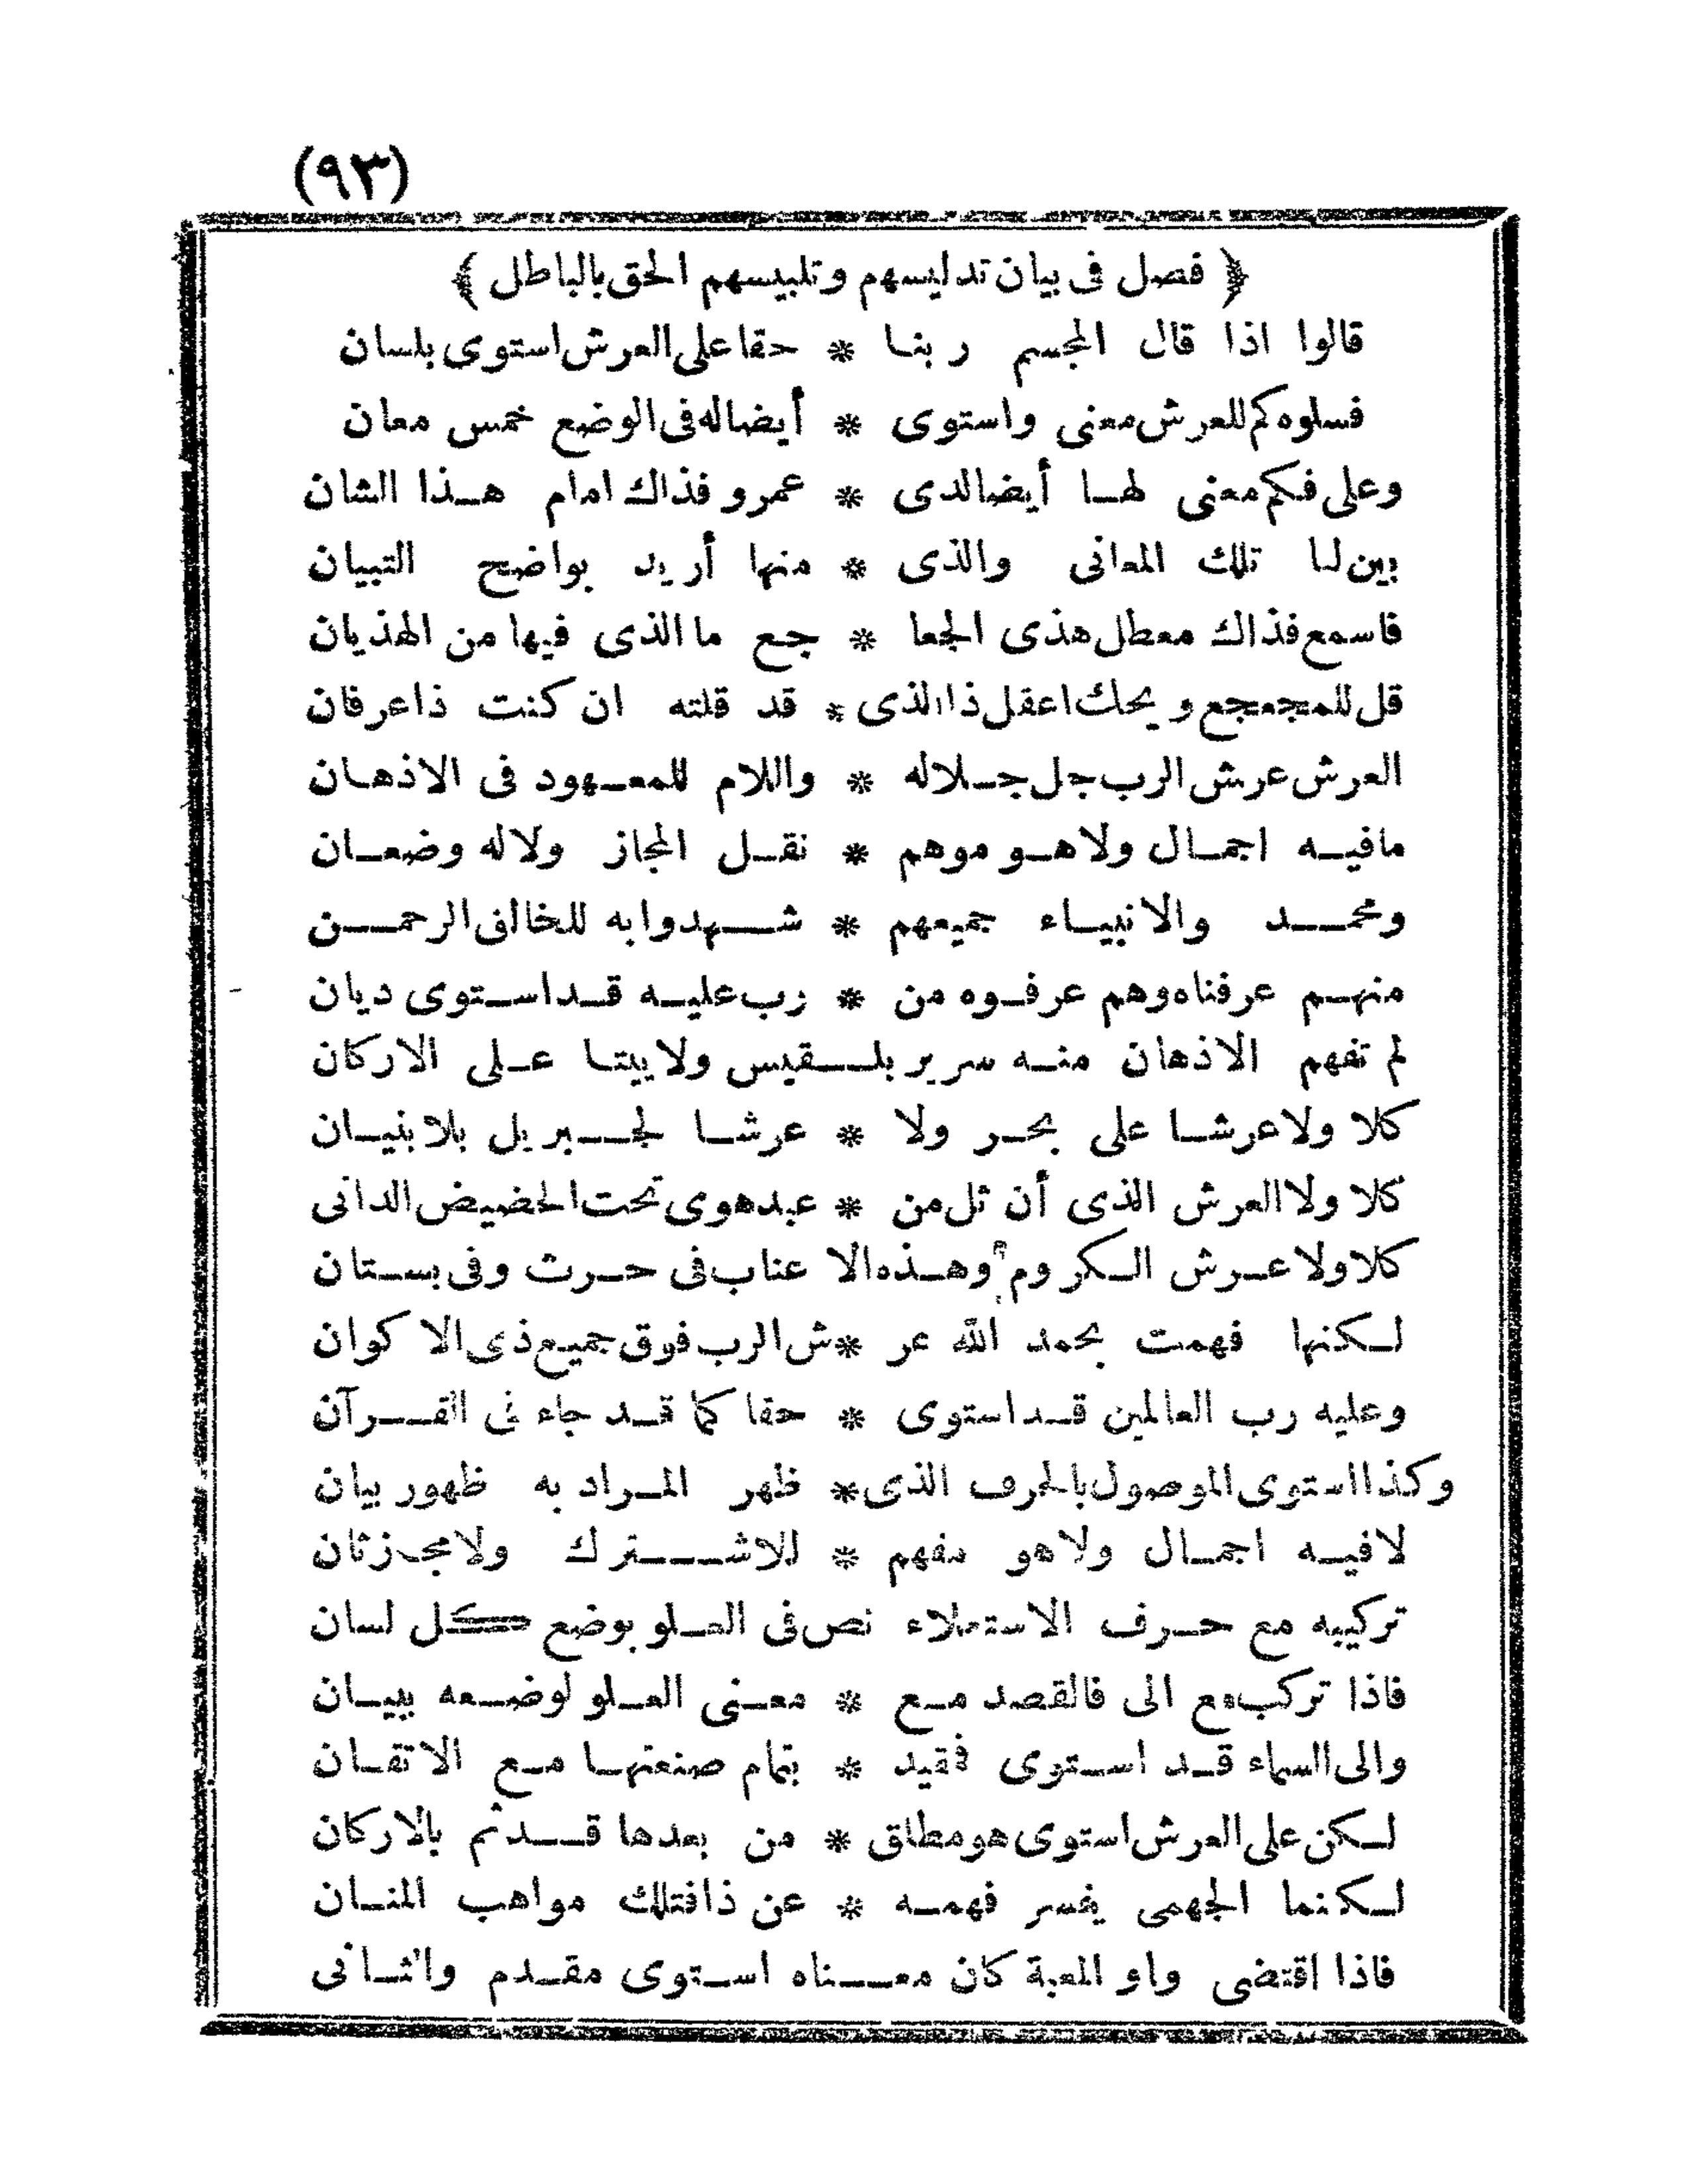 (٩٣)
﴿ فصل فى بيان تدليسهم وتلبيسهم الحق بالباطل ﴾
قالوا اذا قال المجسم ربنا * حقا على العرش استوى بلسان
فسلوه كم للعرش معنى واستوى * أيضا له فى الوضع خمس معان
وعلى فكم معنى لها أيضا لدى * عمرو فذاك امام هذا الشان
بين لنا تلك المعانى والذى * منها أريد بواضح التبيان
فاسمع فذاك معطل هذى الجعا * جع ما الذى فيها من الهذيان
قل للمجعجع ويحك اعقل ذا الذى * قد قلته ان كنت ذا عرفان
العرش عرش الرب جل جلاله * واللام للمعهود فى الاذهان
مافيه اجمال ولا هو موهم * نقل المجاز ولا له وضعان
ومحمد والانبياء جميعهم * شهدوا به للخالق الرحمن
منهم عرفناه وهم عرفوه من * رب عليه قد استوى ديان
لم تفهم الاذهان منه سرير بلقيس ولا بيتا على الاركان
كلا ولا عرشا على بحر ولا * عرشا لجبريل بلا بنيان
كلا ولا العرش الذى أن ثل من * عبد هوى تحت الحضيض الدانى
كلا ولا عرش الكروم وهذه الا عناب فى حرث وفى بستان
لكنها فهمت بحمد الله عر * ش الرب فوق جميع ذى الاكوان
وعليه رب العالمين قد استوى * حقا كما قد جاء فى القرآن
وكذا استوى الموصول بالحرف الذى * ظهر المراد به ظهور بيان
لا فيه اجمال ولا هو مفهم * للاشترك ولا مجز ثان
تركيبه مع حرف الاستعلاء نص فى العلو بوضع كل لسان
فاذا تركب مع الى فالقصد مع * معنى العلو لوضعه ببيان
والى السماء قد استوى فمقيد * بتمام صنعتها مع الاتقان
لكن على العرش استوى هو مطلق * من بعدها قد تم بالاركان
لكنما الجهمى يقصر فهمه * عن ذا فتلك مواهب المنان
فاذا اقتضى واو المعية كان معناه استوى مقدم والثانى